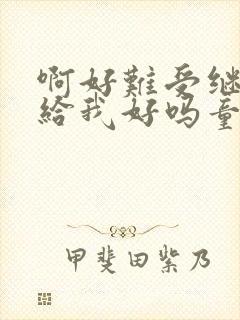 啊好難受继
給我好吗童
甲斐田紫乃